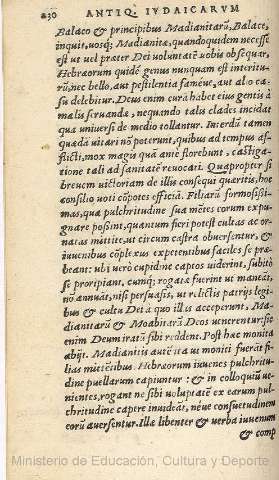 230 ANTIQ. IVDAICARVM
Balaco & principibus Madianitarũ, Balace,
inquit, uosq; Madianitæ, quandoquidem necesse
est ut uel præter Dei uoluntatẽ uobis obsequar,
Hebræorum quidẽ genus nunquam est interitu-
rũ, nec bello, aut pestilentia fameue, aut alio ca-
su delebitur. Deus enim curã habet eius gentis à
malis seruandæ, nequando talis clades incidat
qua uniuersi de medio tollantur. Interdũ tamen
quædã uitari nõ poterunt, quibus ad tempus af-
flicti, mox magis quã ante florebunt, castiga-
tione tali ad sanitatẽ reuocati. Quapropter si
breuem uictoriam de illis consequi quæritis, hoc
consilio uoti cõpotes efficiã. Filiarũ formosissi-
mas, quæ pulchritudine sua mẽtes eorum expu-
gnare possint, quantum fieri potest cultas ac or-
natas mittite, ut circum castra obuersentur, &
iuuenibus cõplexus expetentibus faciles se præ-
beant: ubi uerò cupidine captos uiderint, subitò
se proripiant, cumq; rogatæ fuerint ut maneãt,
nõ annuãt, nisi persuasis, ut relictis patrijs legi-
bus & cultu Dei à quo illas acceperunt, Ma-
dianitarũ & Moabitarũ Deos uenerentur: sic
enim Deum iratũ sibi reddent. Post hæc monita
abijt. Madianitis autẽ ita ut moniti fuerãt fi-
lias mittẽtibus Hebræorum iuuenes pulchritu-
dine puellarum capiuntur: & in colloquiũ ue-
nientes, rogant ne sibi uoluptatẽ ex earum pul-
chritudine capere inuideãt, néue consuetudinem
eorũ auersentur. Illæ libenter & uerba iuuenum
& comp
Ministerio de Educación, Cultura y Deporte